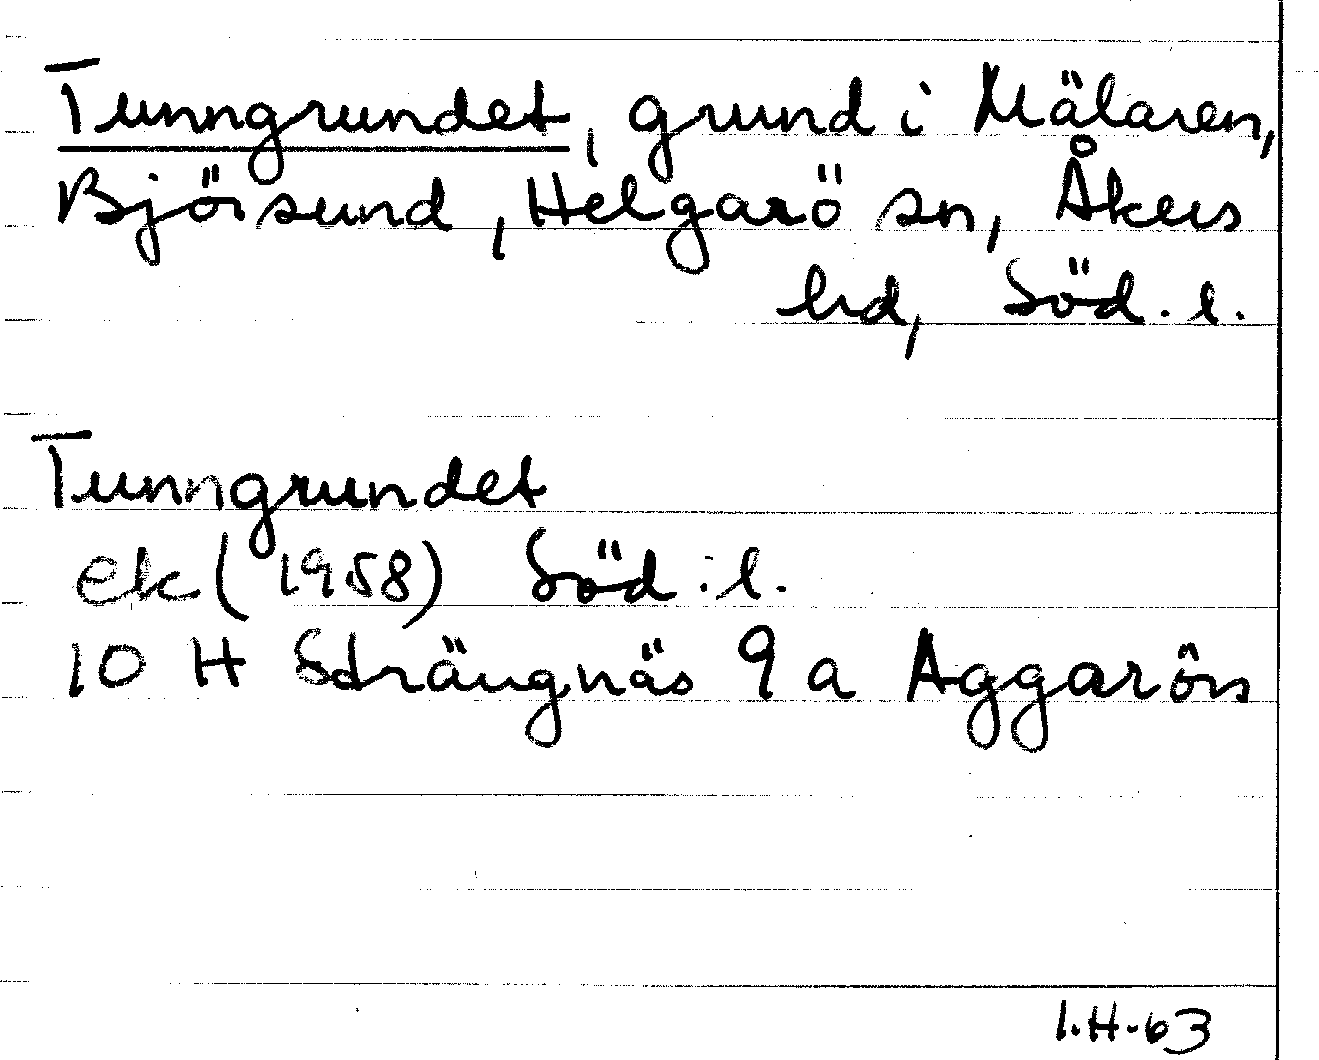 Tunngrundet, grund i Mälaren,
Björsund, Helgarö sn, Åkers
hd, Söd. l.
Tunngrundet
ek (1958) Söd. l.
10 H Strängnäs 9 a Aggarön
I.H-63